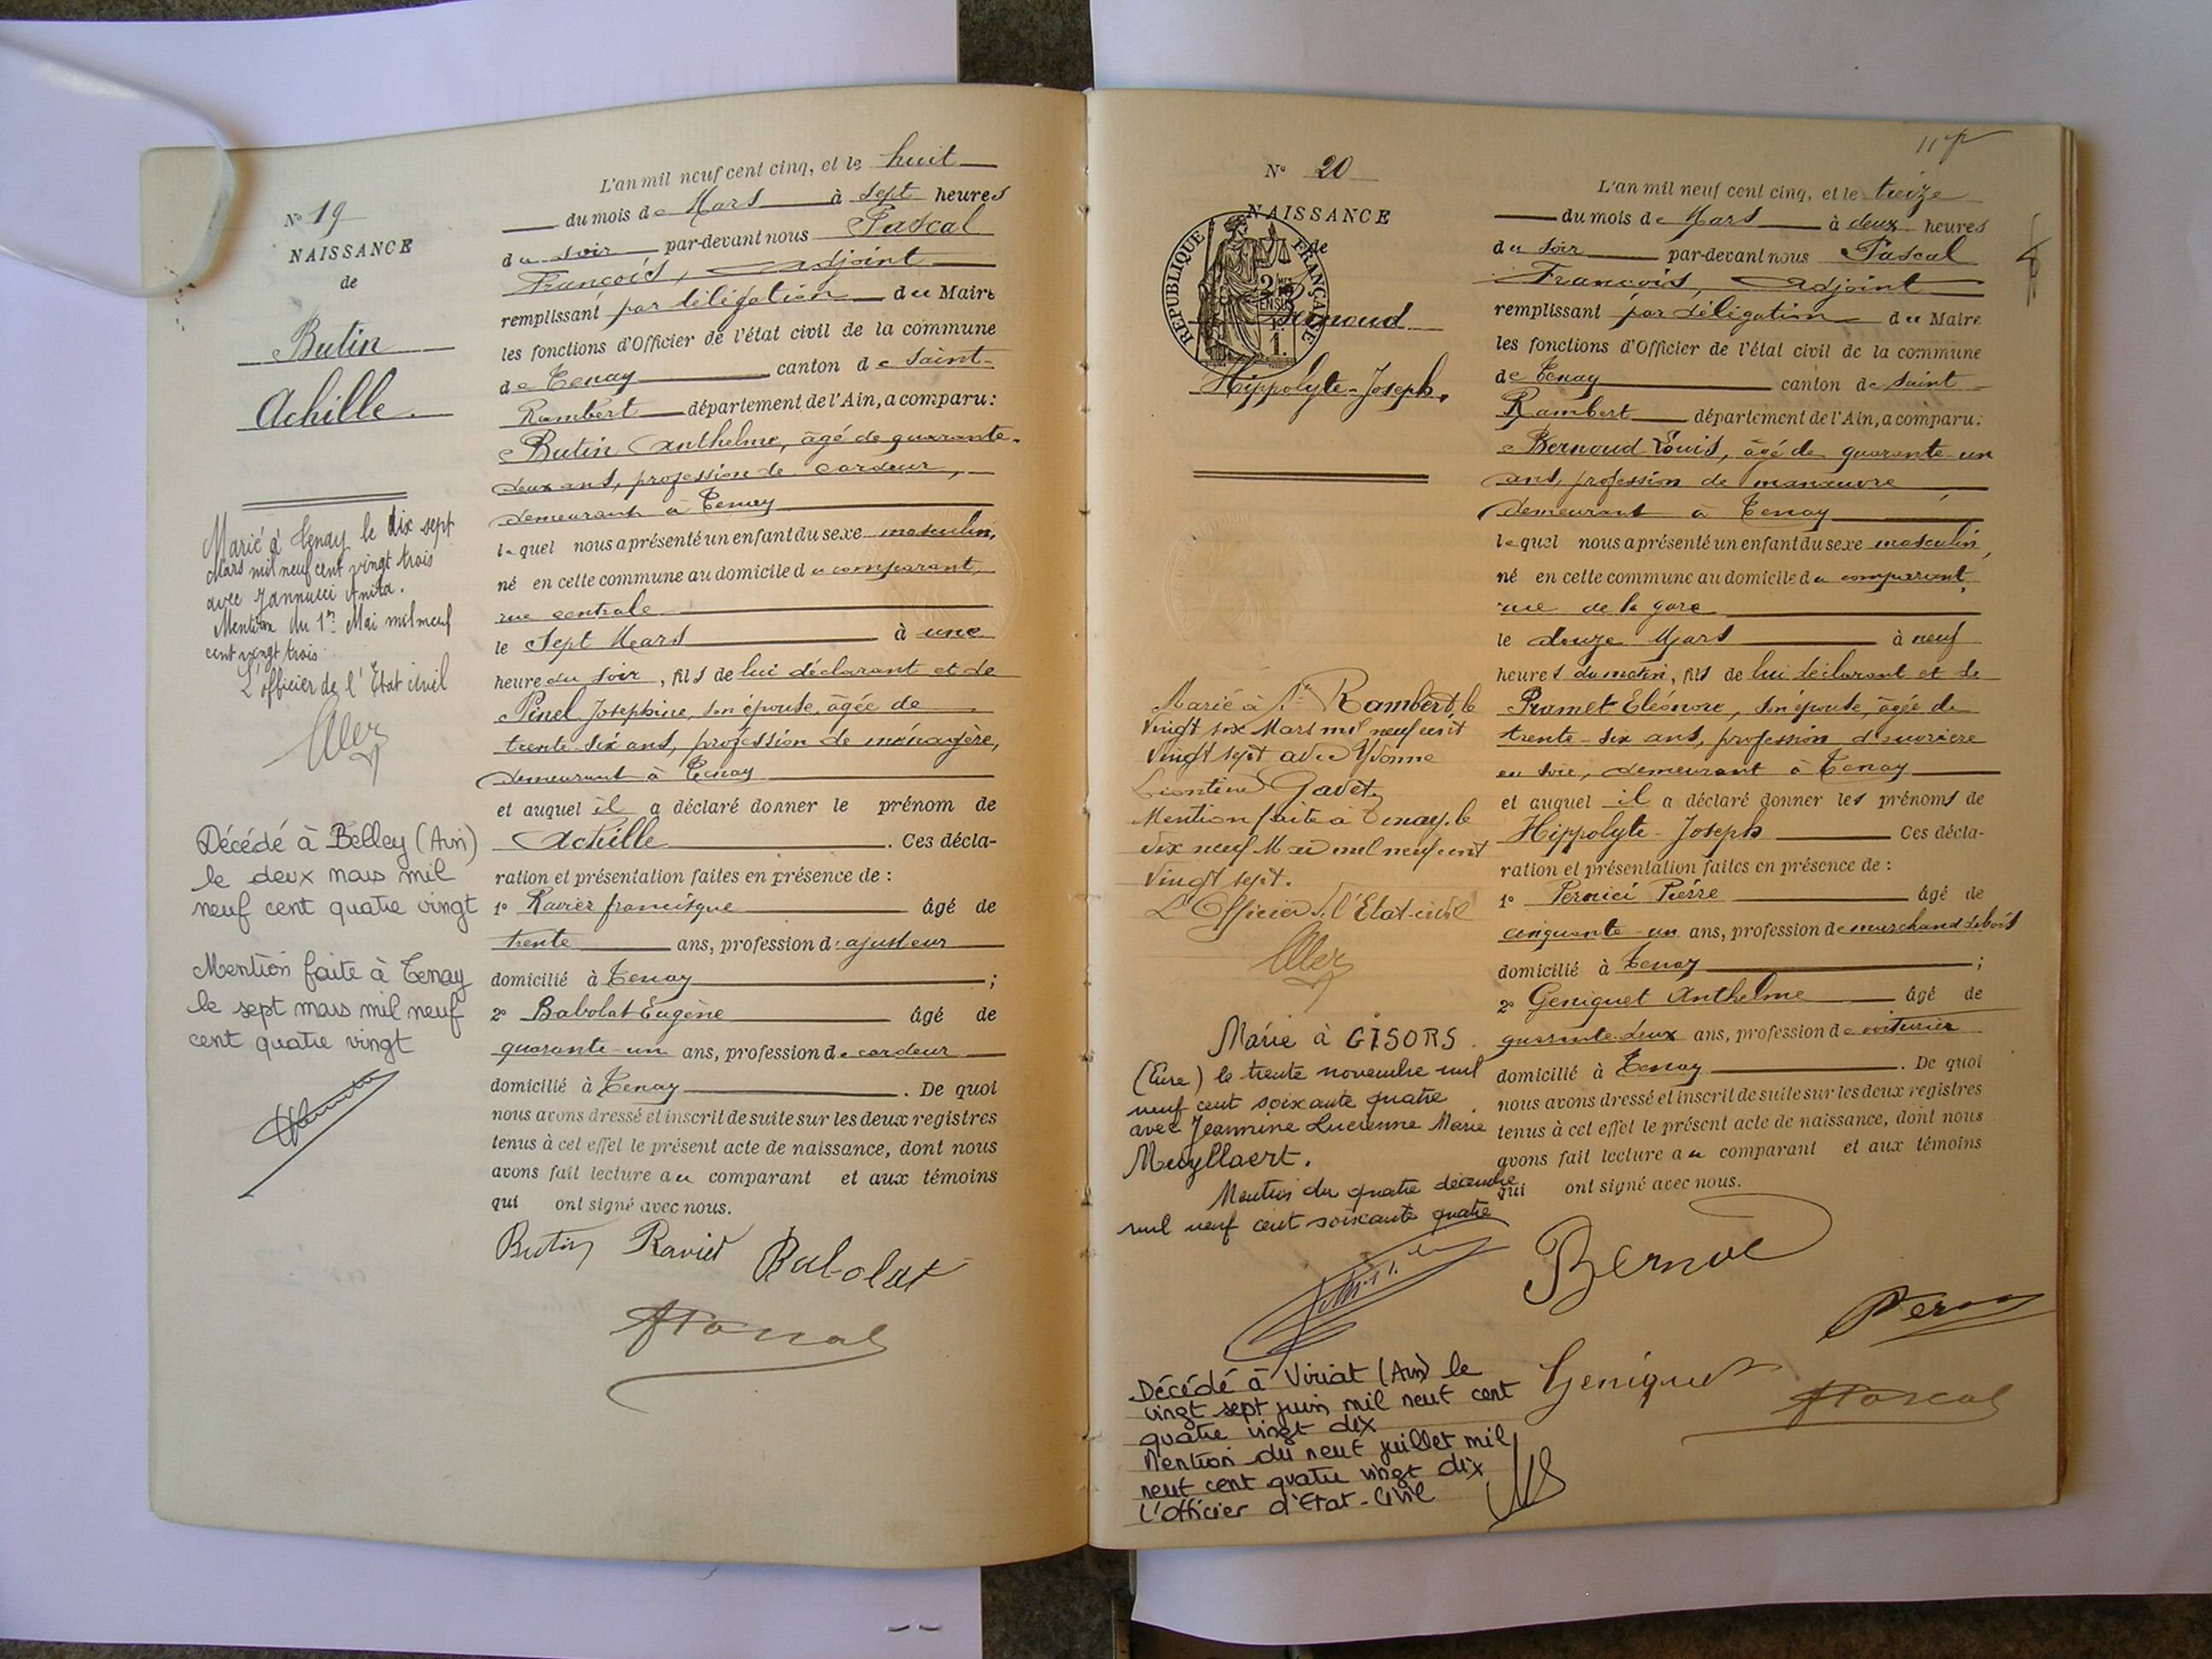 N° 19
NAISSANCE
de
Butin
Achille.
Marié à Tenay le dix sept
Mars mil neuf cent vingt trois
avec Jannucci Anita.
Mention du 1er Mai mil neuf
cent vingt trois
L'officier de l'Etat civil
Décédé à Belley (Ain)
le deux mars mil
neuf cent quatre vingt
Mention faite à Tenay
le sept mars mil neuf
cent quatre vingt
L'an mil neuf cent cinq, et le huit
du mois de Mars à sept heures
du soir par-devant nous Pascal
François, adjoint
remplissant par délégation du Maire
les fonctions d'Officier de l'état civil de la commune
de Tenay canton de Saint-
Rambert département de l'Ain, a comparu:
Butin Anthelme, âgé de quarante-
deux ans, profession de cardeur,
demeurant à Tenay
lequel nous a présenté un enfant du sexe masculin,
né en cette commune au domicile du comparant,
rue centrale
le sept Mars à une
heure du soir, fils de lui déclarant et de
Pinel Joséphine, son épouse, âgée de
trente-six ans, profession de ménagère,
demeurant à Tenay
et auquel il a déclaré donner le prénom de
Achille. Ces décla-
ration et présentation faites en présence de :
1° Ravier francisque âgé de
trente ans, profession d'ajusteur
domicilié à Tenay ;
2° Babolat Eugène âgé de
quarante-un ans, profession de cardeur
domicilié à Tenay. De quoi
nous avons dressé et inscrit de suite sur les deux registres
tenus à cet effet le présent acte de naissance, dont nous
avons fait lecture au comparant et aux témoins
qui ont signé avec nous.
Butin Ravier Babolat
FPascal
11
N° 20
NAISSANCE
de
REPUBLIQUE FRANÇAISE
Bernoud
Hippolyte-Joseph.
Marié à St Rambert, le
vingt six Mars mil neuf cent
vingt sept avec Yvonne
Léontine Gavet
Mention faite à Tenay, le
dix neuf Mai mil neuf cent
vingt sept.
L'Officier de l'Etat-civil
Marié à GISORS
(Eure) le trente novembre mil
neuf cent soixante quatre
avec Jeannine Lucienne Marie
Meuyllaert.
Mention du quatre décembre
mil neuf cent soixante quatre
Décédé à Viriat (Ain) le
vingt sept juin mil neuf cent
quatre vingt dix
Mention du neuf juillet mil
neuf cent quatre vingt dix
L'Officier d'Etat-Civil
L'an mil neuf cent cinq, et le treize
du mois de Mars à deux heures
du soir par-devant nous Pascal
François, Adjoint
remplissant par délégation du Maire
les fonctions d'Officier de l'état civil de la commune
de Tenay canton de Saint-
Rambert département de l'Ain, a comparu:
Bernoud Louis, âgé de quarante-un
ans, profession de manœuvre
demeurant à Tenay
lequel nous a présenté un enfant du sexe masculin,
né en cette commune au domicile du comparant,
rue de la gare
le douze Mars à neuf
heures du matin, fils de lui déclarant et de
Pramet Eléonore, son épouse, âgée de
trente-six ans, profession d'ouvrière
en soie, demeurant à Tenay
et auquel il a déclaré donner les prénoms de
Hippolyte-Joseph Ces décla-
ration et présentation faites en présence de :
1° Pernici Pierre âgé de
cinquante-un ans, profession de marchand de bois
domicilié à Tenay ;
2° Geniquet Anthelme âgé de
quarante-deux ans, profession de voiturier
domicilié à Tenay. De quoi
nous avons dressé et inscrit de suite sur les deux registres
tenus à cet effet le présent acte de naissance, dont nous
avons fait lecture au comparant et aux témoins
qui ont signé avec nous.
Geniquet
FPascal